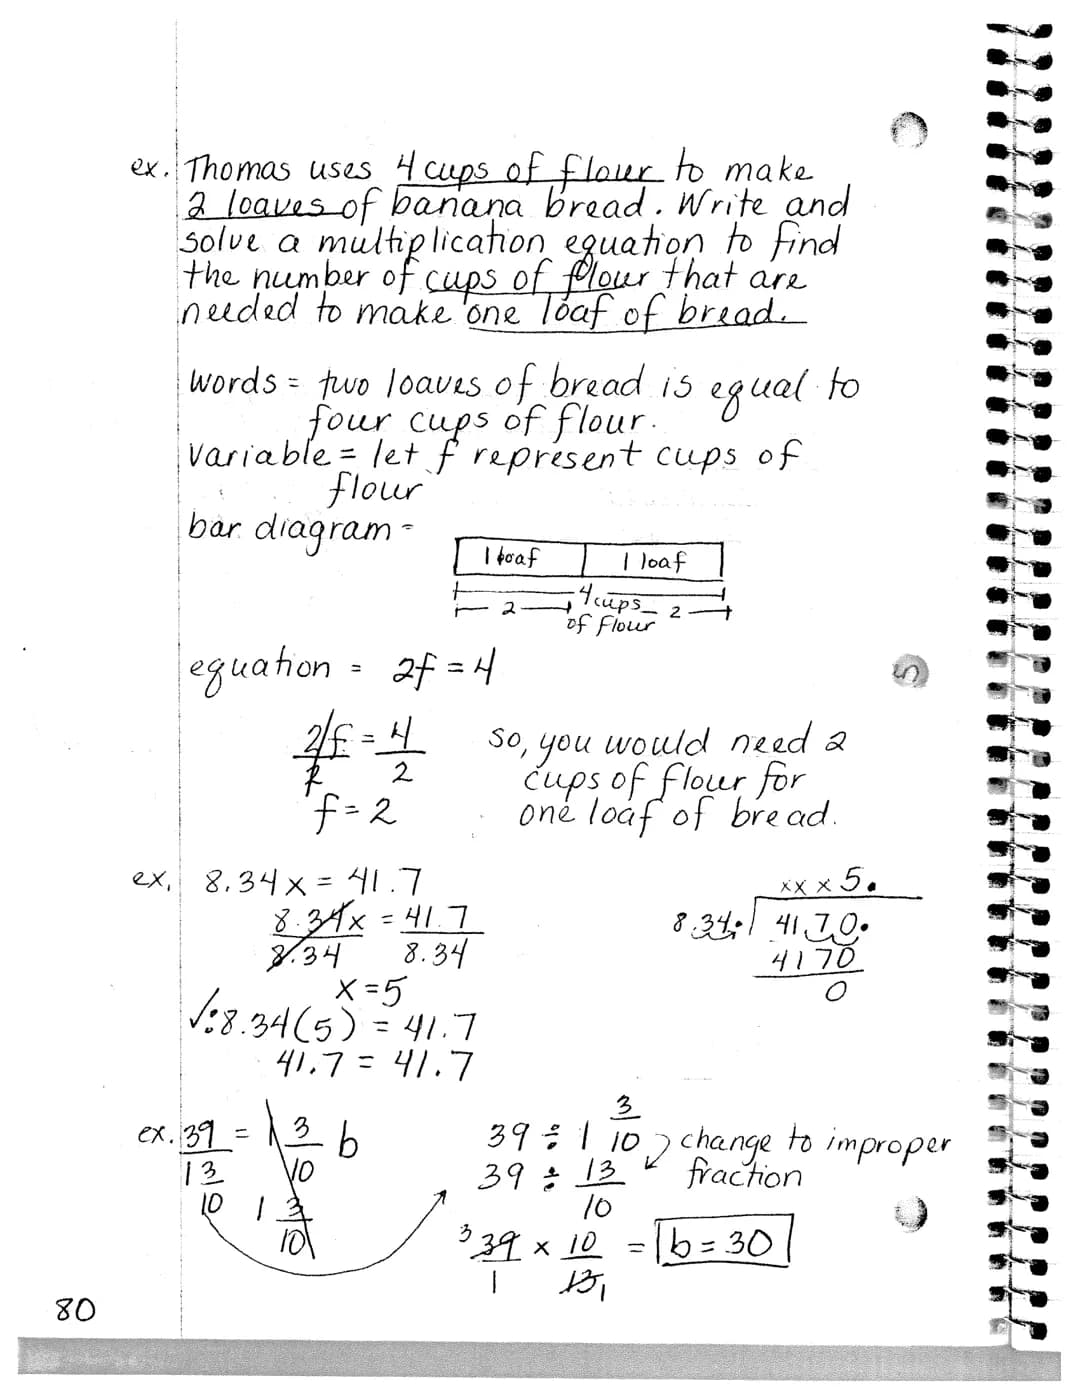 ex. Thomas uses 4 cups of flour to make
2 loaves of banana bread. Write and
solve a multiplication equation to find
the number of cups of flour that are
needed to make one loaf of bread.
words = two loaves of bread is equal to
four cups of flour.
variable = let f represent cups of
flour
bar diagram =
1 loaf 1 loaf
4 cups
2 2
of flour
equation = 2f = 4
2f/2 = 4/2 so, you would need 2
cups of flour for
f = 2 one loaf of bread.
ex. 8.34x = 41.7
8.34x/8.34 = 41.7/8.34
x = 5
√: 8.34(5) = 41.7
41.7 = 41.7
xx x 5.
8.34. 41.70.
4170
0
ex. 39 = 1 3/10 b
13/10 1 3/10
39 ÷ 1 3/10 change to improper
39 ÷ 13/10 fraction
3 39/1 x 10/13 1 = b = 30
80